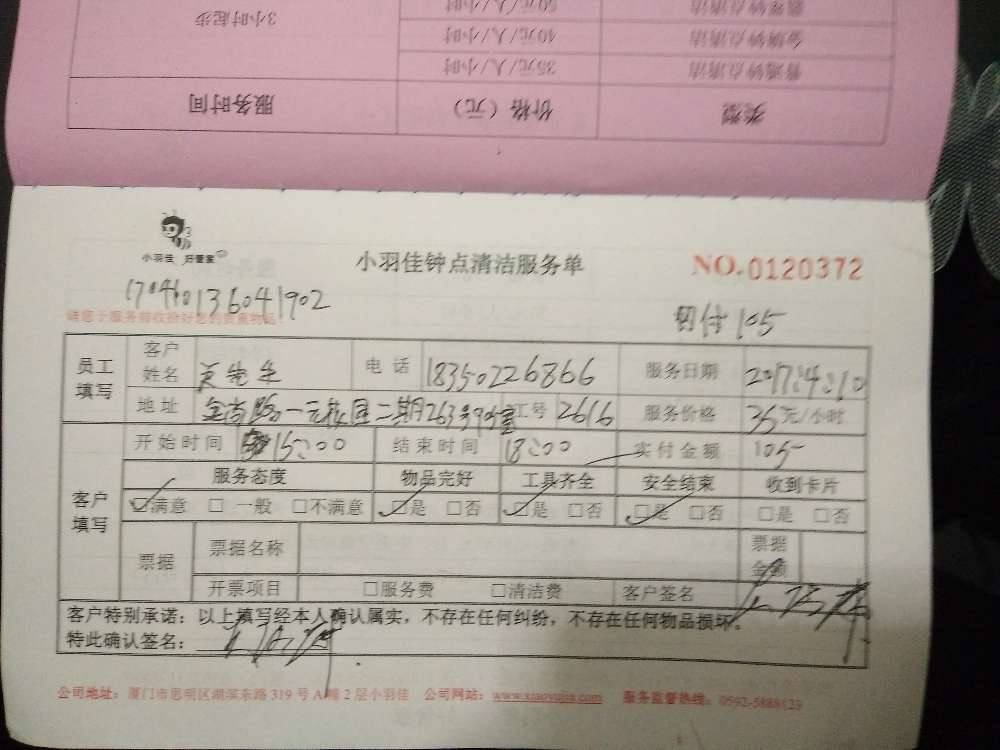 3小时起步
50元/人/小时
金牌钟点清洁
40元/人/小时
普通钟点清洁
35元/人/小时
类型
价格（元）
服务时间
小羽佳 好管家
小羽佳钟点清洁服务单
NO.0120372
136041902
付105
员工填写
客户姓名
电话 18350226866
服务日期 2017.4.10
地址 金尚路 二期263号
工号 2616
服务价格 35元/小时
客户填写
开始时间 15:00
结束时间 18:00
实付金额 105
服务态度 物品完好 工具齐全 安全结束 收到卡片
☑满意 □一般 □不满意 ☑是 □否 ☑是 □否 ☑是 □否 □是 □否
票据
票据名称
票据金额
开票项目 □服务费 □清洁费 客户签名
客户特别承诺：以上填写经本人确认属实，不存在任何纠纷，不存在任何物品损坏。
特此确认签名：
公司地址：厦门市思明区湖滨东路319号A幢2层小羽佳 公司网站：www.xiaoyujia.com 服务监督热线：0592-5888123